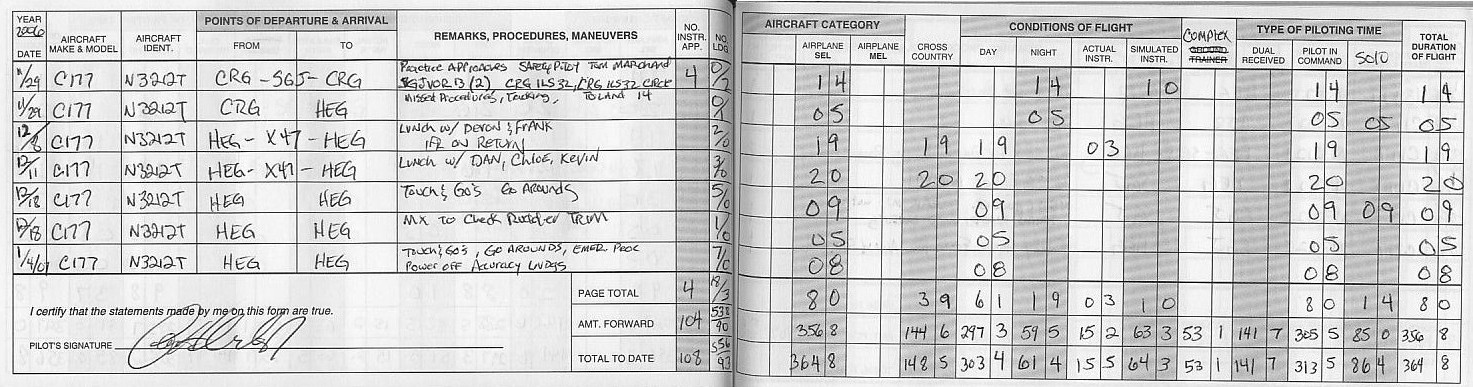 YEAR 2006 DATE AIRCRAFT MAKE & MODEL AIRCRAFT IDENT. POINTS OF DEPARTURE & ARRIVAL FROM TO REMARKS, PROCEDURES, MANEUVERS NO. INSTR. APP. NO. LDG AIRCRAFT CATEGORY AIRPLANE SEL AIRPLANE MEL CROSS COUNTRY CONDITIONS OF FLIGHT DAY NIGHT ACTUAL INSTR. SIMULATED INSTR. COMPLEX GROUND TRAINER TYPE OF PILOTING TIME DUAL RECEIVED PILOT IN COMMAND SOLO TOTAL DURATION OF FLIGHT
11/29 C177 N3212T CRG - SGJ - CRG Practice Approaches Safety Pilot Tom Marchand 4 0/2 1 4 1 4 1 0 1 4 1 4
SGJ VOR 13 (2) CRG ILS 32, CRG ILS 32 CIRCLE
11/29 C177 N3212T CRG HEG Missed Procedures, Tracking, TO LAND 14 0/1 0 5 0 5 0 5 0 5 0 5
12/8 C177 N3212T HEG - X47 - HEG Lunch w/ Devon & Frank 2/0 1 9 1 9 1 9 0 3 1 9 1 9
IFR on Return
12/11 C177 N3212T HEG - X47 - HEG Lunch w/ DAN, Chloe, Kevin 3/0 2 0 2 0 2 0 2 0 2 0
12/18 C177 N3212T HEG HEG Touch & Go's Go Arounds 5/0 0 9 0 9 0 9 0 9 0 9
12/18 C177 N3212T HEG HEG MX to Check Rudder TRIM 1/0 0 5 0 5 0 5 0 5
1/4/07 C177 N3212T HEG HEG Touch & Go's, Go Arounds, EMER. PROC 7/0 0 8 0 8 0 8 0 8
Power off Accuracy LNDGS
PAGE TOTAL 4 18/3 8 0 3 9 6 1 1 9 0 3 1 0 8 0 1 4 8 0
I certify that the statements made by me on this form are true.
AMT. FORWARD 104 538/90 356 8 144 6 297 3 59 5 15 2 63 3 53 1 141 7 305 5 85 0 356 8
PILOT'S SIGNATURE
TOTAL TO DATE 108 556/93 364 8 148 5 303 4 61 4 15 5 64 3 53 1 141 7 313 5 86 4 364 8